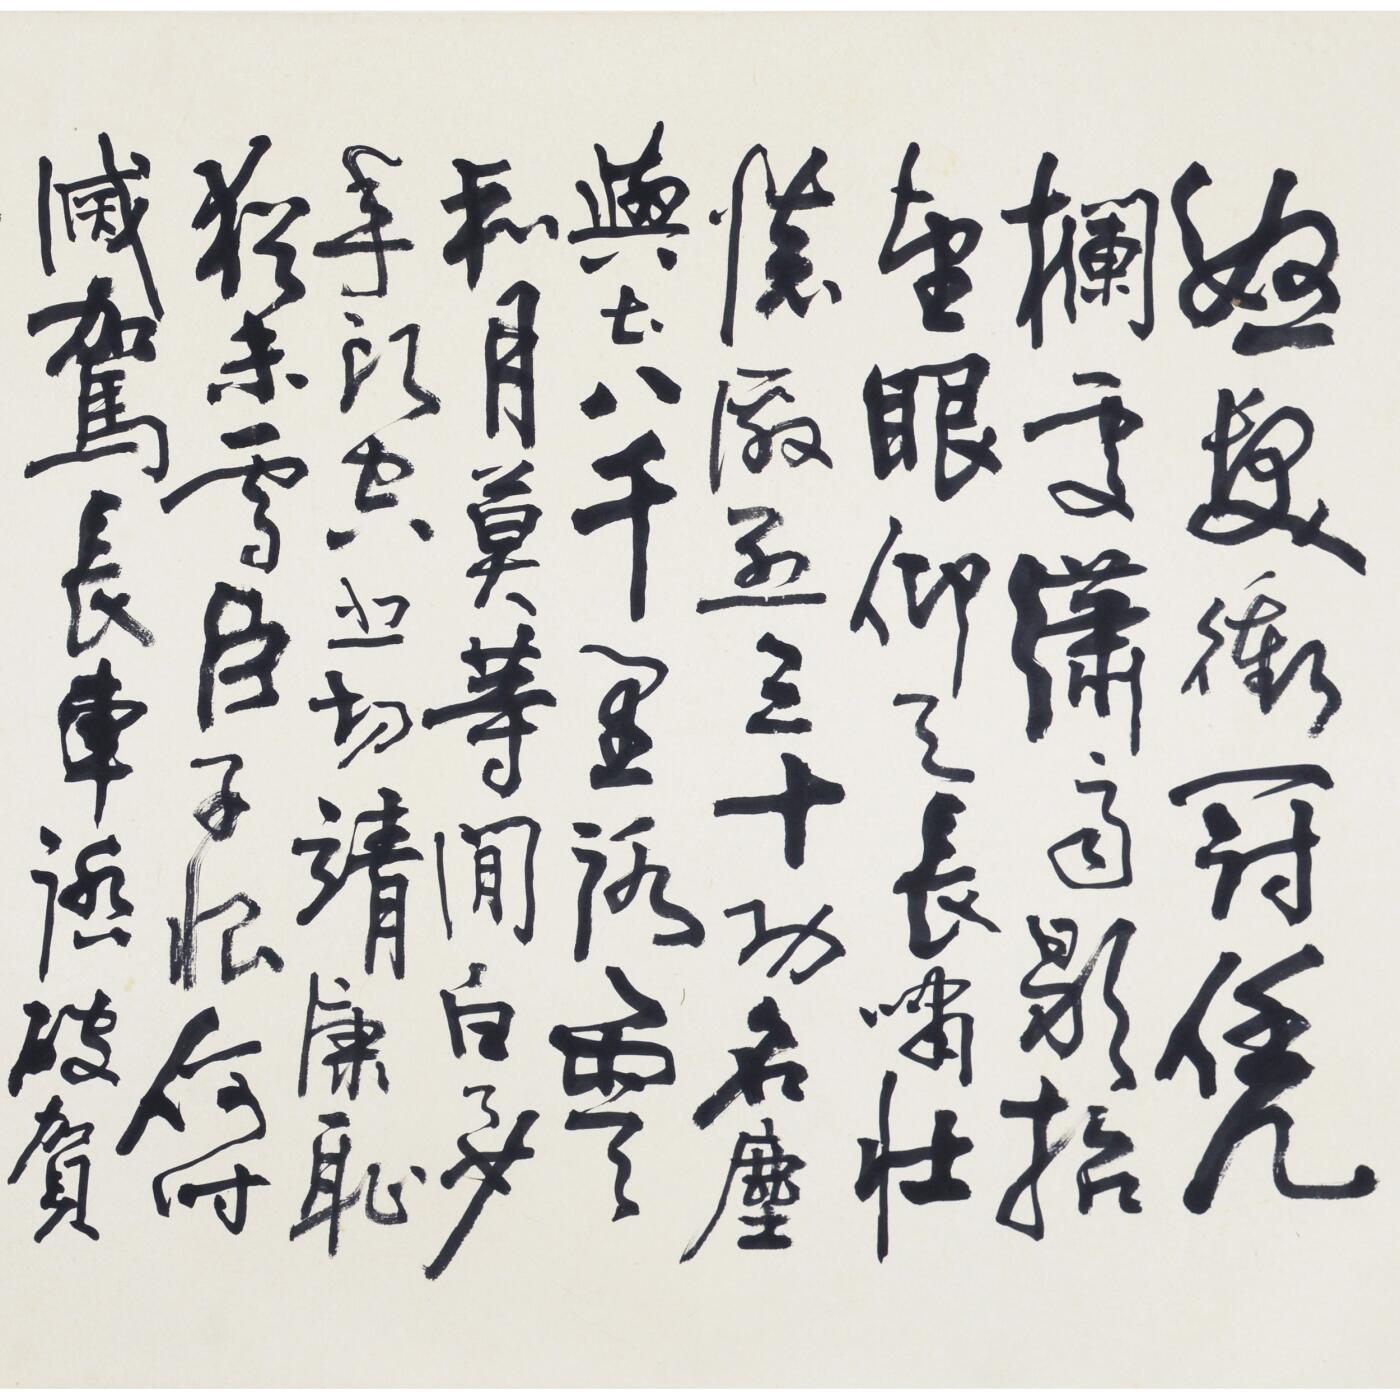 怒髮衝冠凭
欄處瀟雨歇抬
望眼仰天長嘯壯
懷激烈三十功名塵
與土八千里路雲
和月莫等閒白了少
年頭空悲切靖康恥
猶未雪臣子恨何時
滅駕長車踏破賀